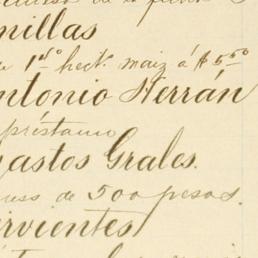 millas
1 hect. maiz á $5.50
Antonio Herrán
préstamo
Gastos Grales.
de 500 pesos.
Sirvientes